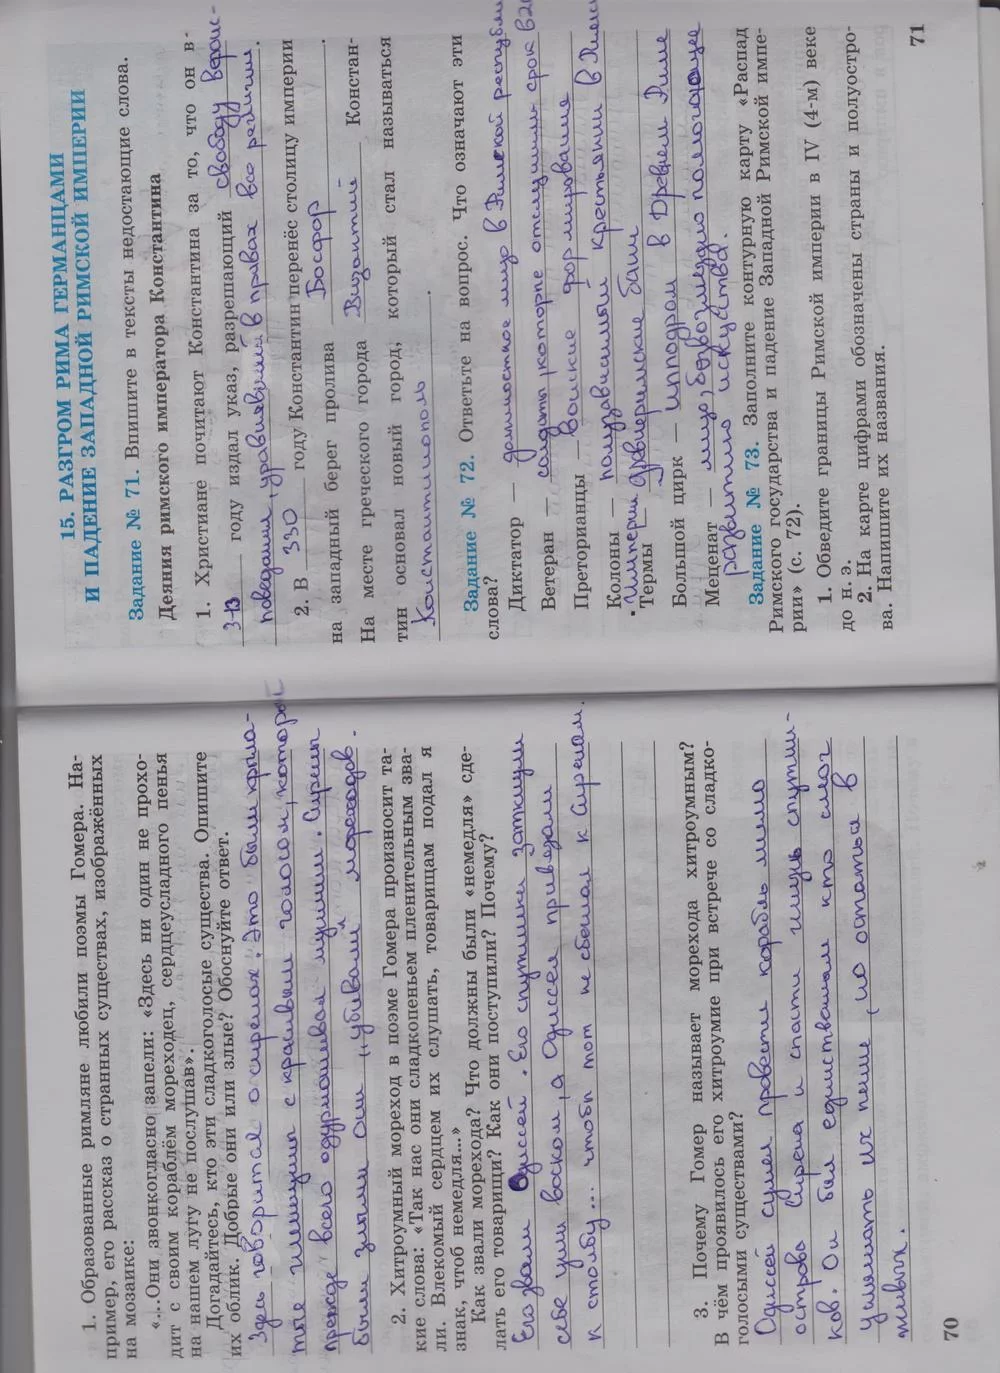 1. Образованные римляне любили поэмы Гомера. На-
пример, его рассказ о странных существах, изображённых
на мозаике:
«...Они звонкогласно запели: «Здесь ни один не прохо-
дит с своим кораблём мореходец, сердцеусладного пенья
на нашем лугу не послушав».
Догадайтесь, кто эти сладкоголосые существа. Опишите
их облик. Добрые они или злые? Обоснуйте ответ.
Здесь говорится о сиренах. Это были крыла-
тые женщины с красивым голосом, который
прежде всего одурманивал мужчин. Сирены
были злыми они убивали мореходов.
2. Хитроумный мореход в поэме Гомера произносит та-
кие слова: «Так нас они сладкопеньем пленительным зва-
ли. Влекомый сердцем их слушать, товарищам подал я
знак, чтоб немедля...»
Как звали морехода? Что должны были «немедля» сде-
лать его товарищи? Как они поступили? Почему?
Его звали Одиссей. Его спутники заткнули
себе уши воском, а Одиссея привезали
к столбу... чтобы тот не сбежал к Сиренам.
3. Почему Гомер называет морехода хитроумным?
В чём проявилось его хитроумие при встрече со сладко-
голосыми существами?
Одиссей сумел провести корабль мимо
острова Сирена и спасти жизнь спутни-
ков. Он был единственым кто смог
услышать их пение, но остатья в
живых.
70
15. РАЗГРОМ РИМА ГЕРМАНЦАМИ
И ПАДЕНИЕ ЗАПАДНОЙ РИМСКОЙ ИМПЕРИИ
Задание № 71. Впишите в тексты недостающие слова.
Деяния римского императора Константина
1. Христиане почитают Константина за то, что он в
313 году издал указ, разрешающий свободу вероис-
поведании, уравневший в правах все религии.
2. В 330 году Константин перенёс столицу империи
на западный берег пролива Босфор.
На месте греческого города Византий Констан-
тин основал новый город, который стал называться
Константинополь.
Задание № 72. Ответьте на вопрос. Что означают эти
слова?
Диктатор — должностное лицо в Римской республи
Ветеран — солдаты, которые отслужили срок в 20
Преторианцы — воиские формирование
Колоны — полузависимый крестьянин в Римс
• Империи
Термы — древнеримские бани
Большой цирк — ипподром в Древнем Риме
Меценат — лицо, безвозмездно помогающее
развитию искуства.
Задание № 73. Заполните контурную карту «Распад
Римского государства и падение Западной Римской импе-
рии» (с. 72).
1. Обведите границы Римской империи в IV (4-м) веке
до н. э.
2. На карте цифрами обозначены страны и полуостро-
ва. Напишите их названия.
71